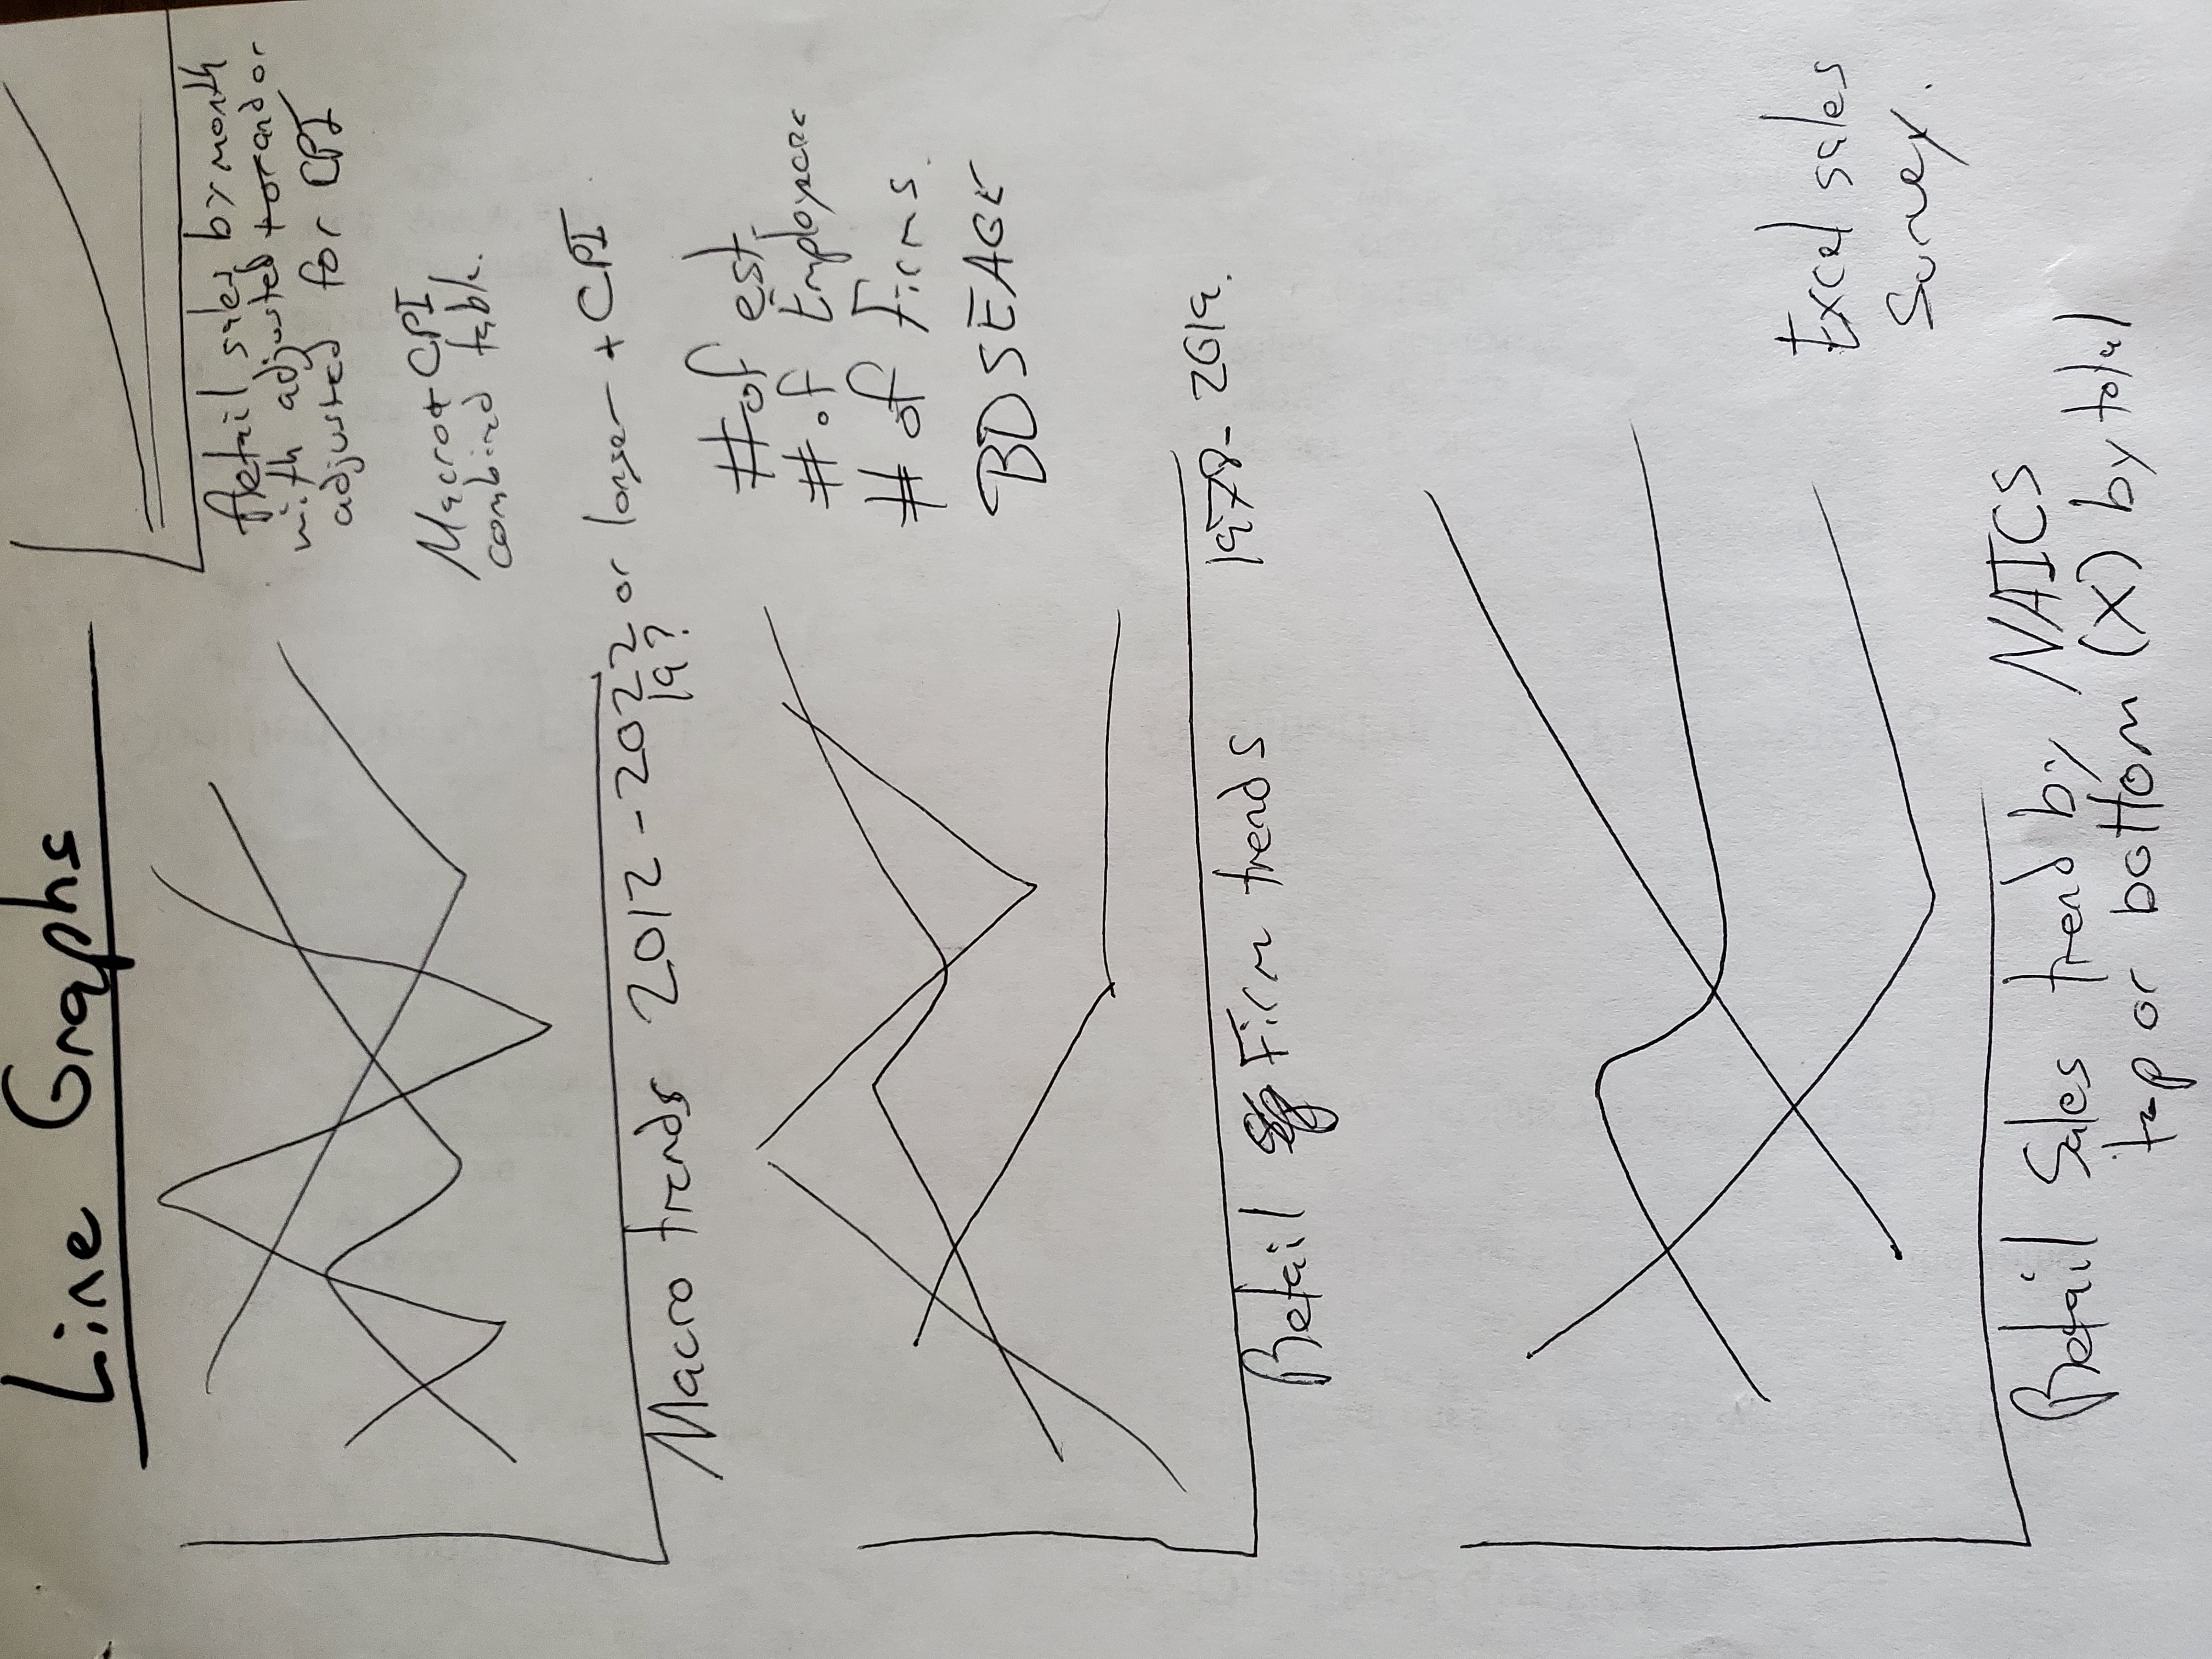 Line Graphs
Retail sales by month
with adjusted and or
adjusted for CPI
Macro + CPI
combined table.
Macro trends 2012-2022 or longer + CPI
19?
# of est.
# of Employees
# of Firms
BDSEAGE
Retail Firm trends 1978-2019.
Excel sales
Survey.
Retail Sales trend by NAICS
top or bottom (X) by total